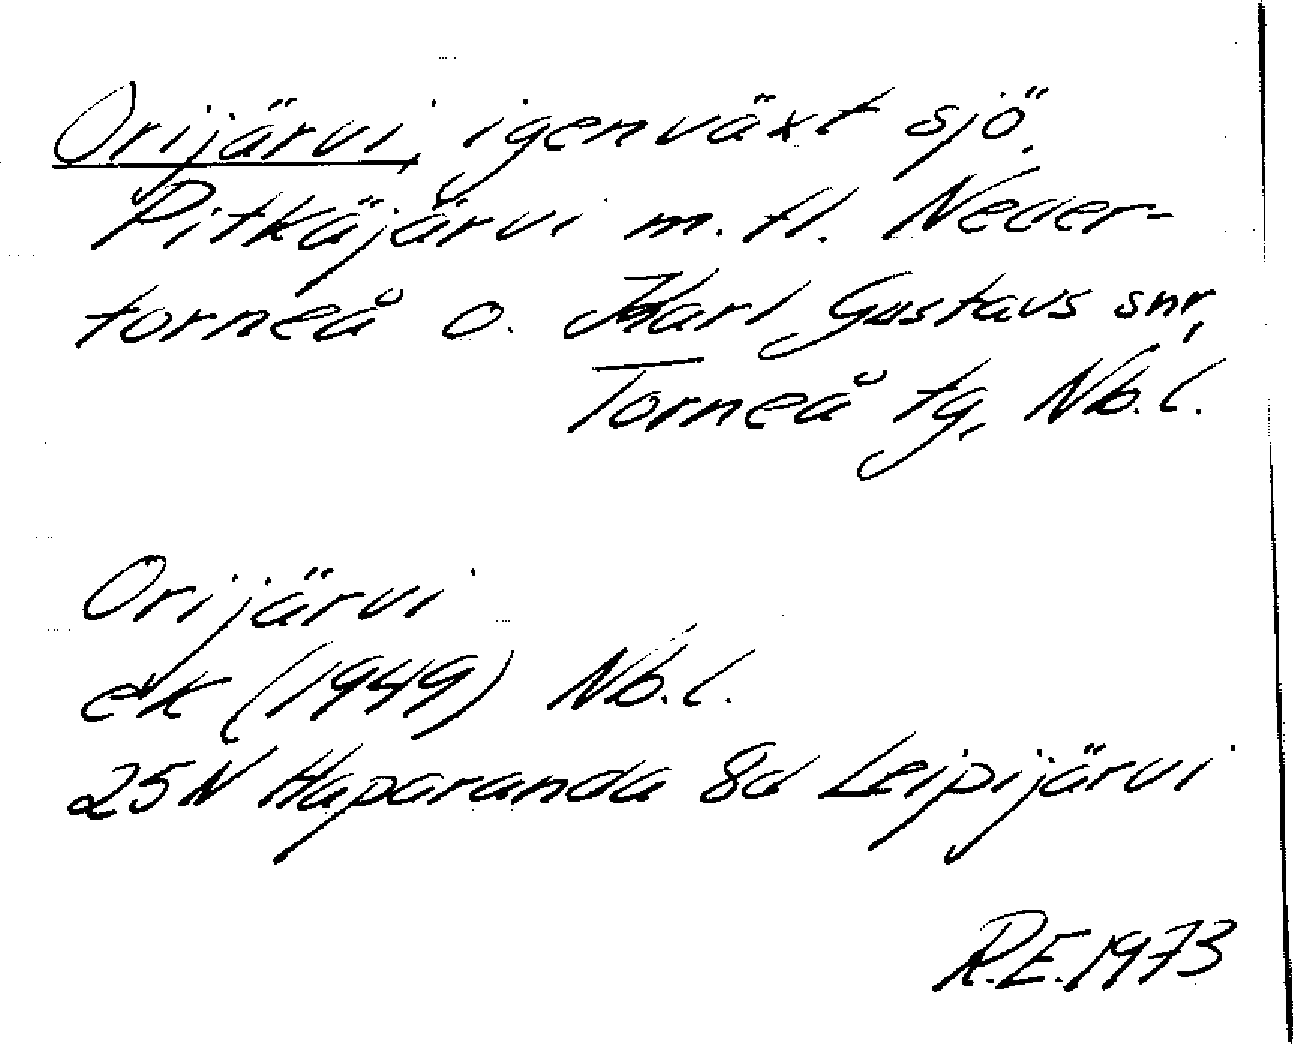 Orijärvi, igenväxt sjö.
Pitkäjärvi m.fl. Neder-
torneå o. Karl Gustavs snr,
Torneå tg, Nb.l.
Orijärvi
ek (1949) Nb.l.
25N Haparanda 8d Leipijärvi
R.E.1973